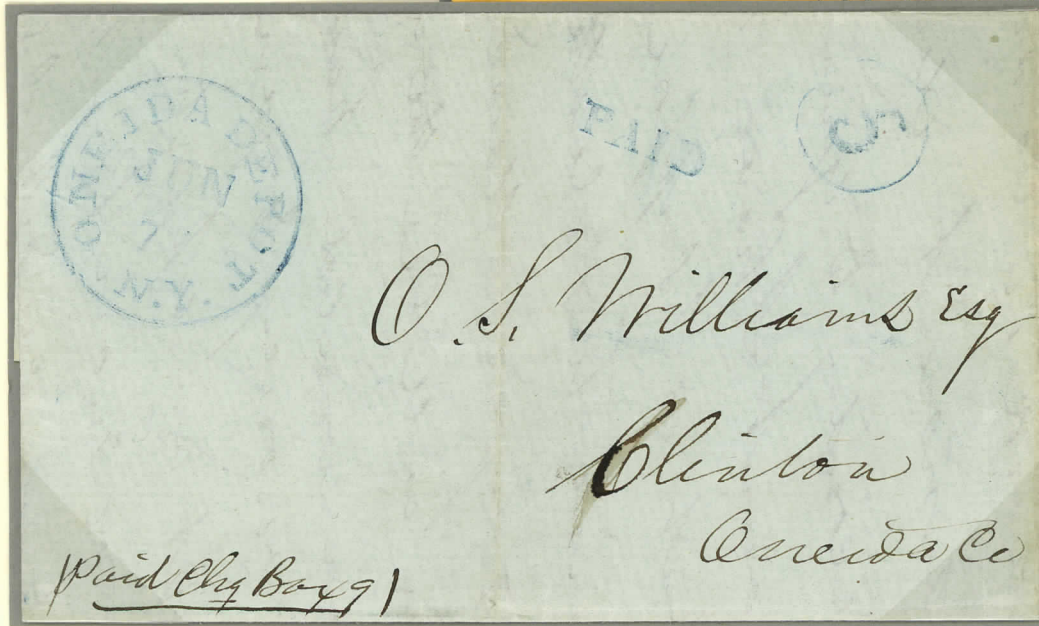 ONEIDA DEPOT
JUN
7
N.Y.
PAID
5
O. S. Williams Esq
Clinton
Oneida Co
Paid Chg Box 9